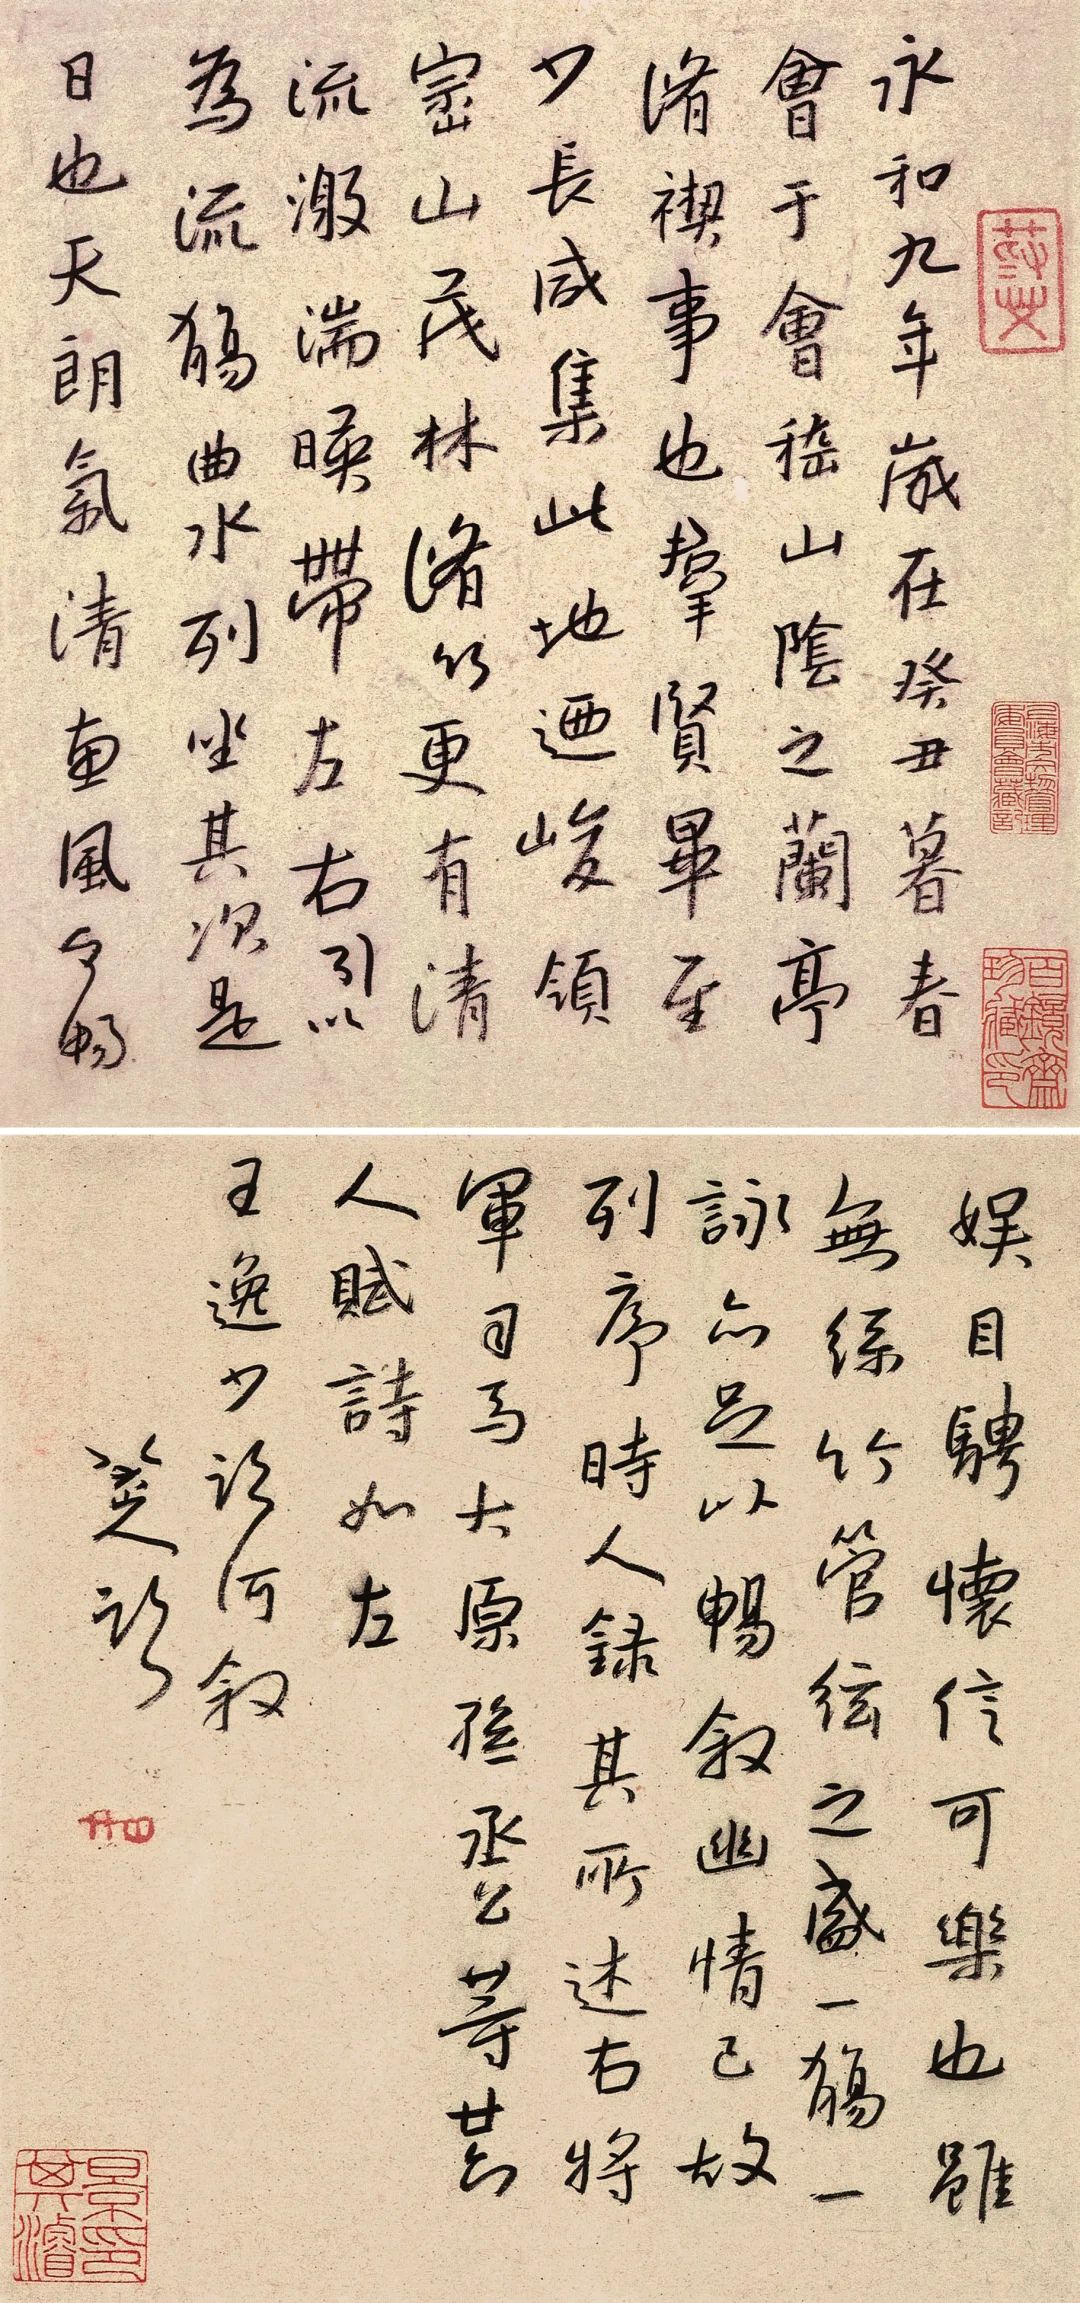 永和九年歲在癸丑暮春
會于會稽山陰之蘭亭
脩禊事也羣賢畢至
少長咸集此地迺峻領
崇山茂林脩竹更有清
流激湍暎帶左右引以
為流觴曲水列坐其次是
日也天朗氣清惠風和暢
娛目騁懷信可樂也雖
無絲竹管絃之盛一觴一
詠亦足以暢敘幽情已故
列序時人錄其所述右將
軍司馬大原孫丞公等廿六
人賦詩如左
王逸少臨河敘
臨
百鏡齋珍藏印
景其濬印